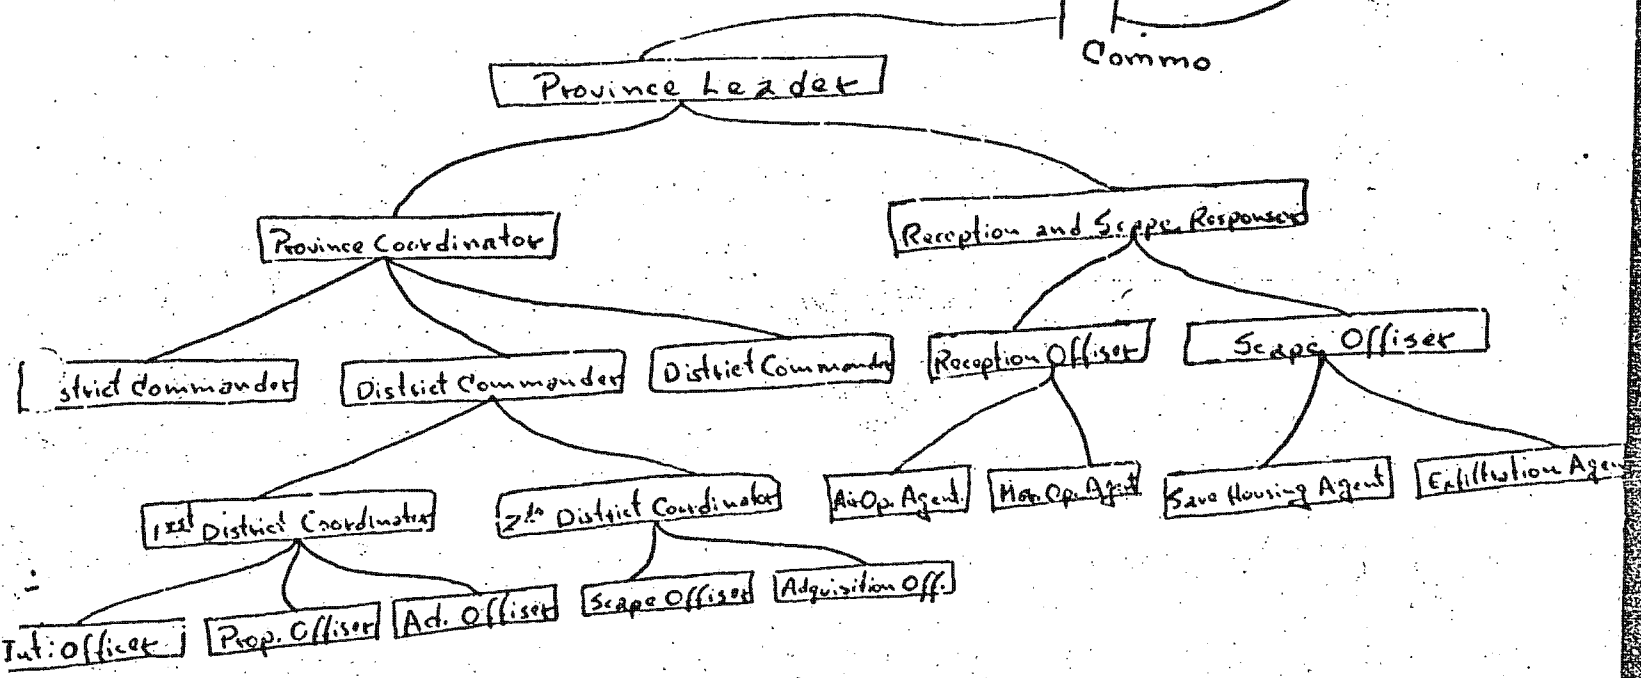 Commo
Province Leader
Province Coordinator
Reception and Scape Responser
strict Commander
District Commander
District Commander
Reception Offiser
Scape Offiser
1rst District Coordinator
2th District Coordinator
Air Op. Agent.
Op. Agent
Save Housing Agent
Exfiltration Agen
Int: Officer
Prop. Offiser
Ad. Offiser
Scape Offiser
Adquisition Off.